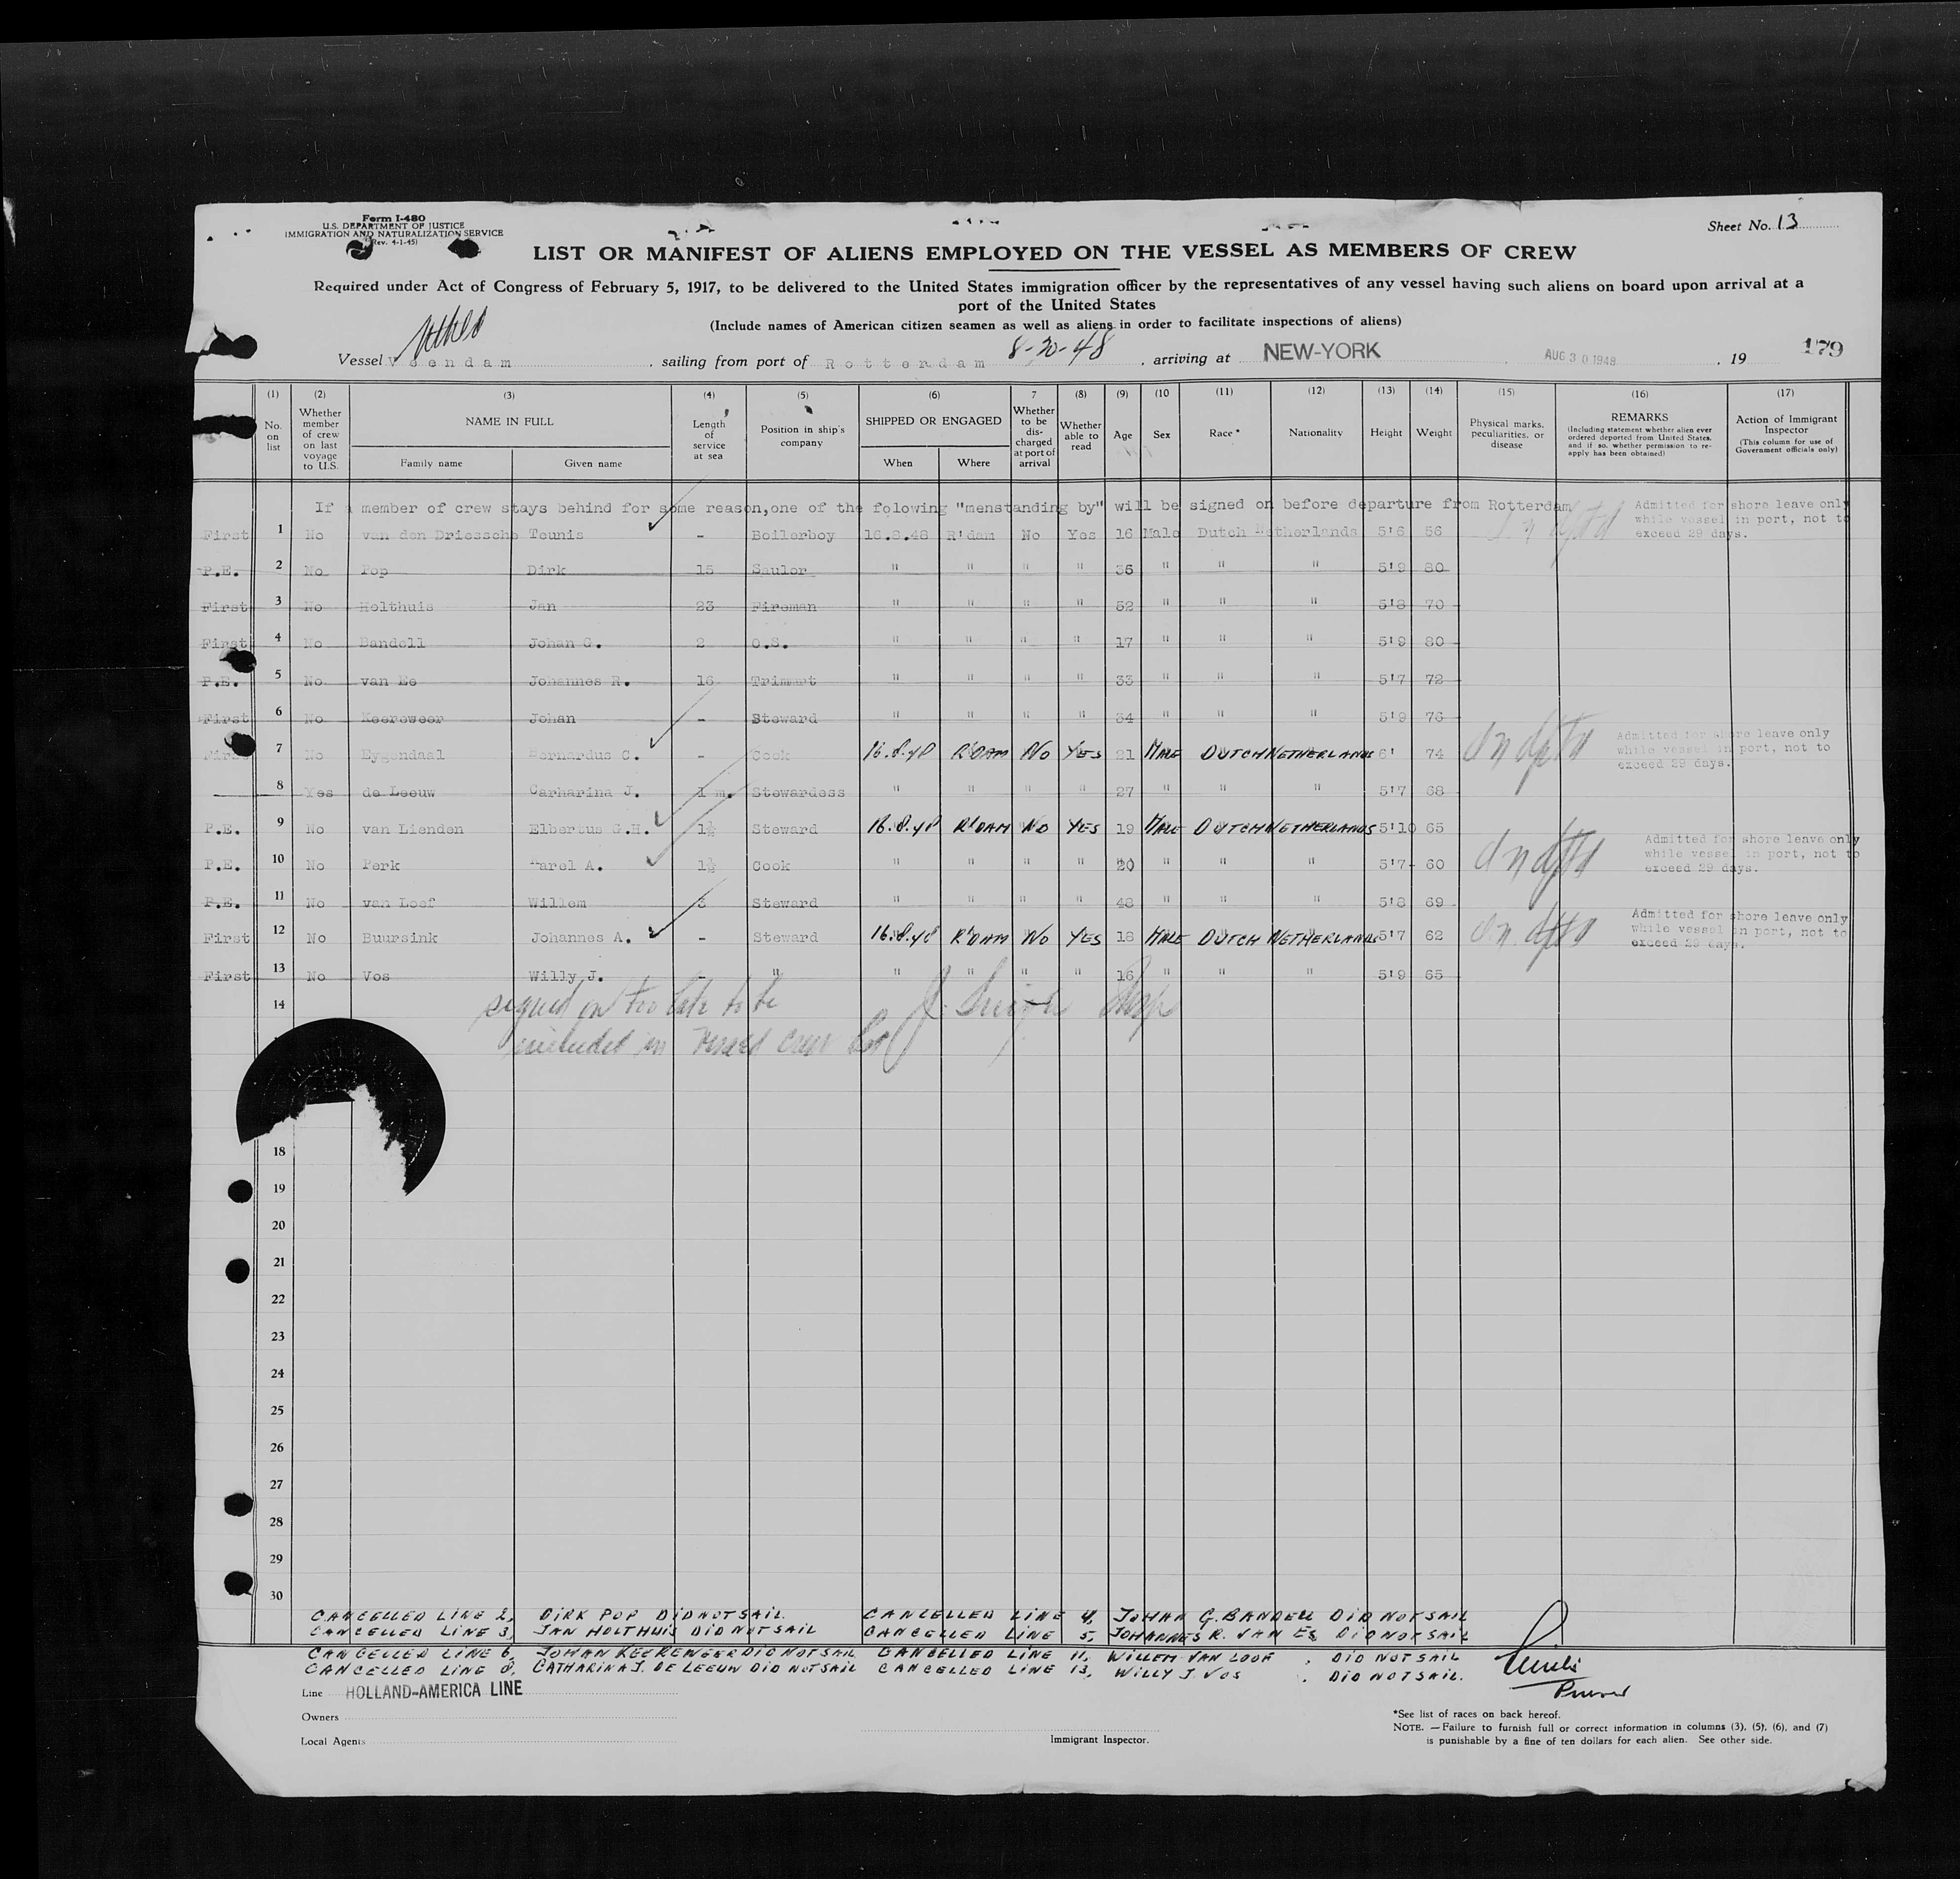 Form I-480
U.S. DEPARTMENT OF JUSTICE
IMMIGRATION AND NATURALIZATION SERVICE
(Rev. 4-1-45)
Sheet No. 13
LIST OR MANIFEST OF ALIENS EMPLOYED ON THE VESSEL AS MEMBERS OF CREW
Required under Act of Congress of February 5, 1917, to be delivered to the United States immigration officer by the representatives of any vessel having such aliens on board upon arrival at a
port of the United States
(Include names of American citizen seamen as well as aliens in order to facilitate inspections of aliens)
Vessel Veendam, sailing from port of Rotterdam 8-30-48, arriving at NEW-YORK AUG 30 1948, 19 179
(1) (2) (3) (4) (5) (6) 7 (8) (9) (10 (11) (12) (13) (14) (15) (16) (17)
No. on list
Whether member of crew on last voyage to U.S.
NAME IN FULL
Family name
Given name
Length of service at sea
Position in ship's company
SHIPPED OR ENGAGED
When
Where
Whether to be discharged at port of arrival
Whether able to read
Age
Sex
Race*
Nationality
Height
Weight
Physical marks, peculiarities, or disease
REMARKS
(Including statement whether alien ever ordered deported from United States, and if so, whether permission to re-apply has been obtained)
Action of Immigrant Inspector
(This column for use of Government officials only)
If a member of crew stays behind for some reason, one of the folowing "menstanding by" will be signed on before departure from Rotterdam
First 1 No van den Driessche Teunis - Boilerboy 16.8.48 R'dam No Yes 16 Male Dutch Netherlands 5'6 56 Admitted for shore leave only while vessel in port, not to exceed 29 days.
P.E. 2 No Pop Dirk 15 Saulor " " " " 36 " " " 5'9 80
First 3 No Holthuis Jan 23 Fireman " " " " 52 " " " 5'8 70
First 4 No Bandell Johan G. 2 O.S. " " " " 17 " " " 5'9 80
P.E. 5 No van Es Johannes R. 16 Trimmrt " " " " 33 " " " 5'7 72
First 6 No Keereweer Johan - Steward " " " " 34 " " " 5'9 76
First 7 No Eygendaal Bernardus C. - Cook 16.8.48 R'DAM NO YES 21 MALE DUTCH NETHERLANDS 6' 74 Admitted for shore leave only while vessel in port, not to exceed 29 days.
8 Yes de Leeuw Carharina J. 1 m. Stewardess " " " " 27 " " " 5'7 68
P.E. 9 No van Lienden Elbertus G.H. 1½ Steward 16.8.48 R'DAM NO YES 19 MALE DUTCH NETHERLANDS 5'10 65
P.E. 10 No Perk Karel A. 1½ Cook " " " " 20 " " " 5'7 60 Admitted for shore leave only while vessel in port, not to exceed 29 days.
P.E. 11 No van Loef Willem 3 Steward " " " " 48 " " " 5'8 69
First 12 No Buursink Johannes A. - Steward 16.8.48 R'DAM NO YES 18 MALE DUTCH NETHERLANDS 5'7 62 Admitted for shore leave only while vessel in port, not to exceed 29 days.
First 13 No Vos Willy J. - " " " " " 16 " " " 5'9 65
14 signed on too late to be
included in crew list
18
19
20
21
22
23
24
25
26
27
28
29
30
CANCELLED LINE 2, DIRK POP DID NOT SAIL. CANCELLED LINE 4, JOHAN G. BANDELL DID NOT SAIL
CANCELLED LINE 3, JAN HOLTHUIS DID NOT SAIL CANCELLED LINE 5, JOHANNES R. VAN ES DID NOT SAIL
CANCELLED LINE 6, JOHAN KEEREWEER DID NOT SAIL CANCELLED LINE 11, WILLEM VAN LOOF, DID NOT SAIL
CANCELLED LINE 8, CATHARINA J. DE LEEUW DID NOT SAIL CANCELLED LINE 13, WILLY J VOS, DID NOT SAIL.
Purser
Line HOLLAND-AMERICA LINE
Owners
Local Agents
Immigrant Inspector.
*See list of races on back hereof.
NOTE. — Failure to furnish full or correct information in columns (3), (5), (6), and (7)
is punishable by a fine of ten dollars for each alien. See other side.